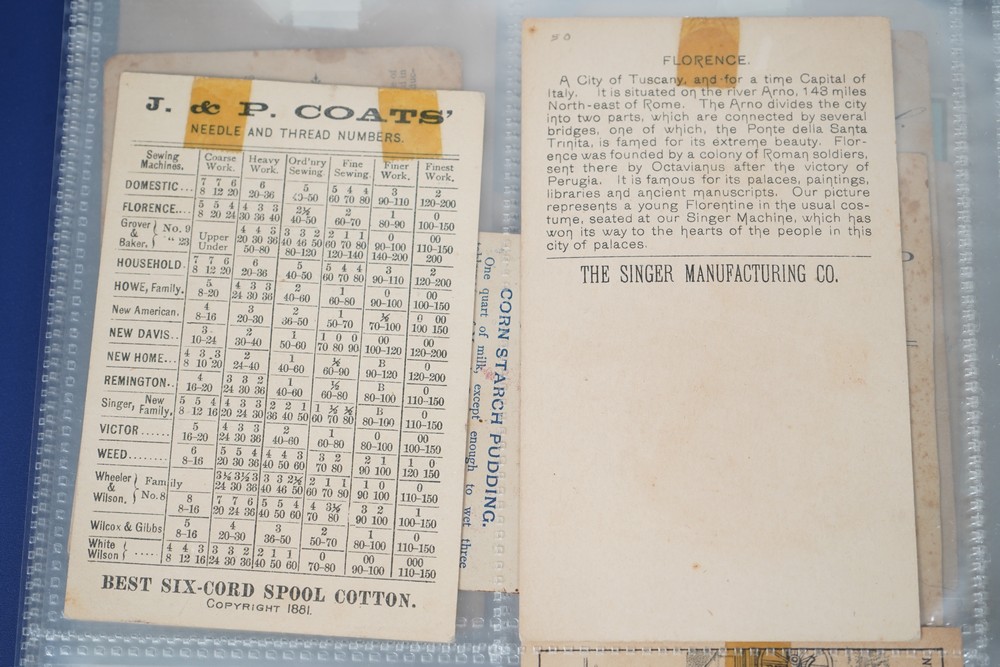 J. & P. COATS'
NEEDLE AND THREAD NUMBERS.
Sewing Machines. Coarse Work. Heavy Work. Ord'nry Sewing. Fine Sewing. Finer Work. Finest Work.
DOMESTIC... 7 7 6 6 5 5 4 4 3 2
8 12 20 20–36 40–50 60 70 80 90–110 120–200
FLORENCE.... 5 5 4 4 3 3 2½ 2 1 0
8 20 24 30 36 40 40–50 60–70 80–90 100–150
Grover & Baker. No. 9 4 4 3 3 3 2 2 1 1 0 00
Upper 20 30 36 40 46 50 60 70 80 90–100 110–150
" 23 Under 50–80 80–120 120–140 140–200 200
HOUSEHOLD. 7 7 6 6 5 5 4 4 3 2
8 12 20 20–36 40–50 60 70 80 90–110 120–200
HOWE, Family. 5 4 3 3 2 1 0 00
8–20 24 30 36 40–60 60–80 90–100 100–150
New American. 4 3 2 1 ½ 0 00
8–16 20–30 36–50 50–70 70–100 100 150
NEW DAVIS.. 3 2 1 1 0 0 00 00
10–24 30–40 50–60 70 80 90 100–120 120–200
NEW HOME... 4 3 3 2 1 ½ B 0
8 10 20 24–40 40–60 60–90 90–120 120–200
REMINGTON.. 4 3 3 2 1 ½ B 0
16–20 24 30 36 40–60 60–80 80–100 110–150
Singer, New Family, 5 5 4 4 3 3 2 2 1 1 ½ ½ B 0
8 12 16 20 24 30 36 40 50 60 70 80 80–100 110–150
VICTOR ...... 5 4 3 3 2 1 0 00
16–20 24 30 36 40–60 60–80 80–100 100–150
WEED........ 6 5 5 4 4 4 3 3 2 2 1 1 0
8–16 20 30 36 40 50 60 70 80 90 100 120 150
Wheeler & Wilson. Family 3¼ 3½ 3 3 3 2½ 2 1 1 1 0 0
24 30 36 40 46 50 60 70 80 90 100 110–150
No. 8 8 7 7 6 5 5 4 4 3½ 3 2 1
8–16 20 24 36 40 50 60 70 80 90 100 100–150
Wilcox & Gibbs 5 4 3 2 1 0
8–16 20–30 36–50 50–70 80–100 110–150
White Wilson ..... 4 4 3 3 3 2 2 1 1 0 00 000
8 12 16 24 30 36 40 50 60 70–80 90–100 110–150
BEST SIX-CORD SPOOL COTTON.
COPYRIGHT 1881.
CORN STARCH PUDDING.
One quart of milk, except enough to wet three
50
FLORENCE.
A City of Tuscany, and for a time Capital of
Italy. It is situated on the river Arno, 143 miles
North-east of Rome. The Arno divides the city
into two parts, which are connected by several
bridges, one of which, the Ponte della Santa
Trinita, is famed for its extreme beauty. Flor-
ence was founded by a colony of Roman soldiers,
sent there by Octavianus after the victory of
Perugia. It is famous for its palaces, paintings,
libraries and ancient manuscripts. Our picture
represents a young Florentine in the usual cos-
tume, seated at our Singer Machine, which has
won its way to the hearts of the people in this
city of palaces.
THE SINGER MANUFACTURING CO.